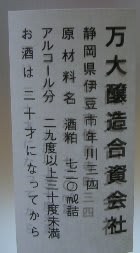 万大醸造合資会社
静岡県伊豆市年川三四
原材料名 酒粕 七二〇㎖詰
アルコール分 二九度以上三十度未満
お酒は二十才になってから